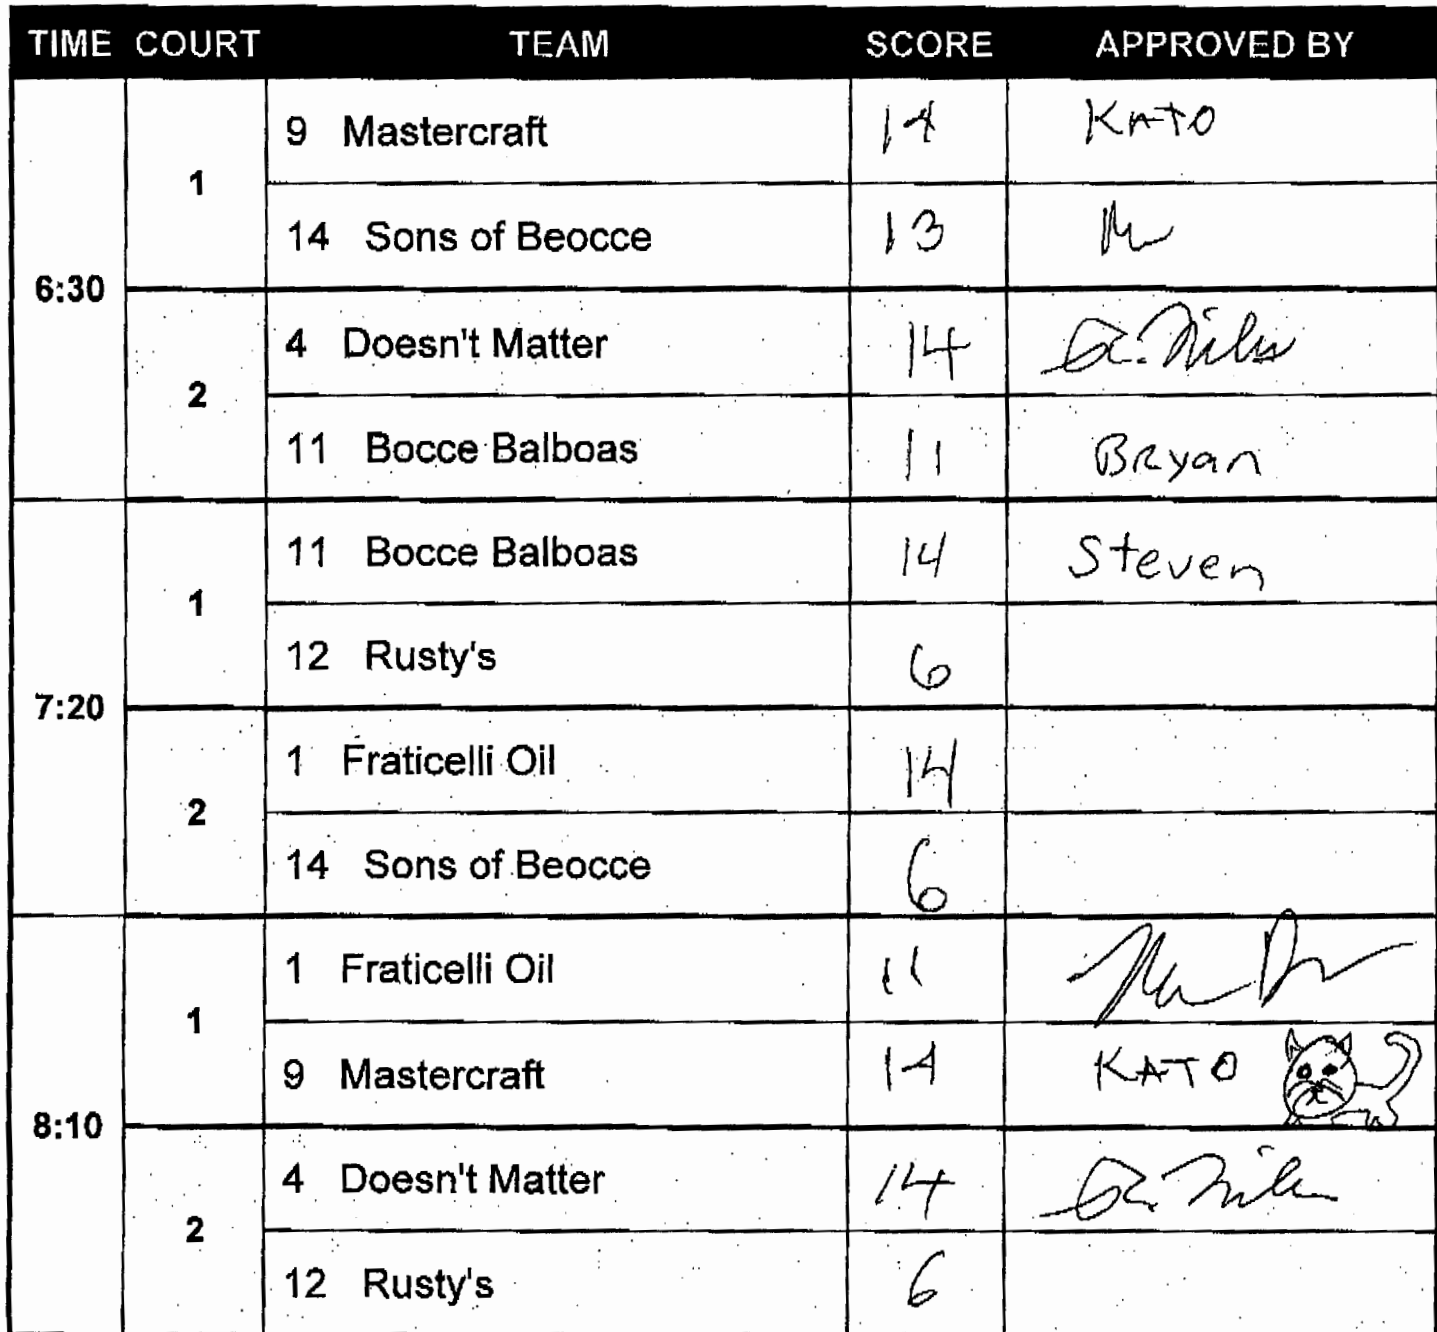 TIME COURT TEAM SCORE APPROVED BY
6:30 1 9 Mastercraft 14 KATO
14 Sons of Beocce 13
2 4 Doesn't Matter 14
11 Bocce Balboas 11 Bryan
7:20 1 11 Bocce Balboas 14 Steven
12 Rusty's 6
2 1 Fraticelli Oil 14
14 Sons of Beocce 6
8:10 1 1 Fraticelli Oil 11
9 Mastercraft 14 KATO
2 4 Doesn't Matter 14
12 Rusty's 6